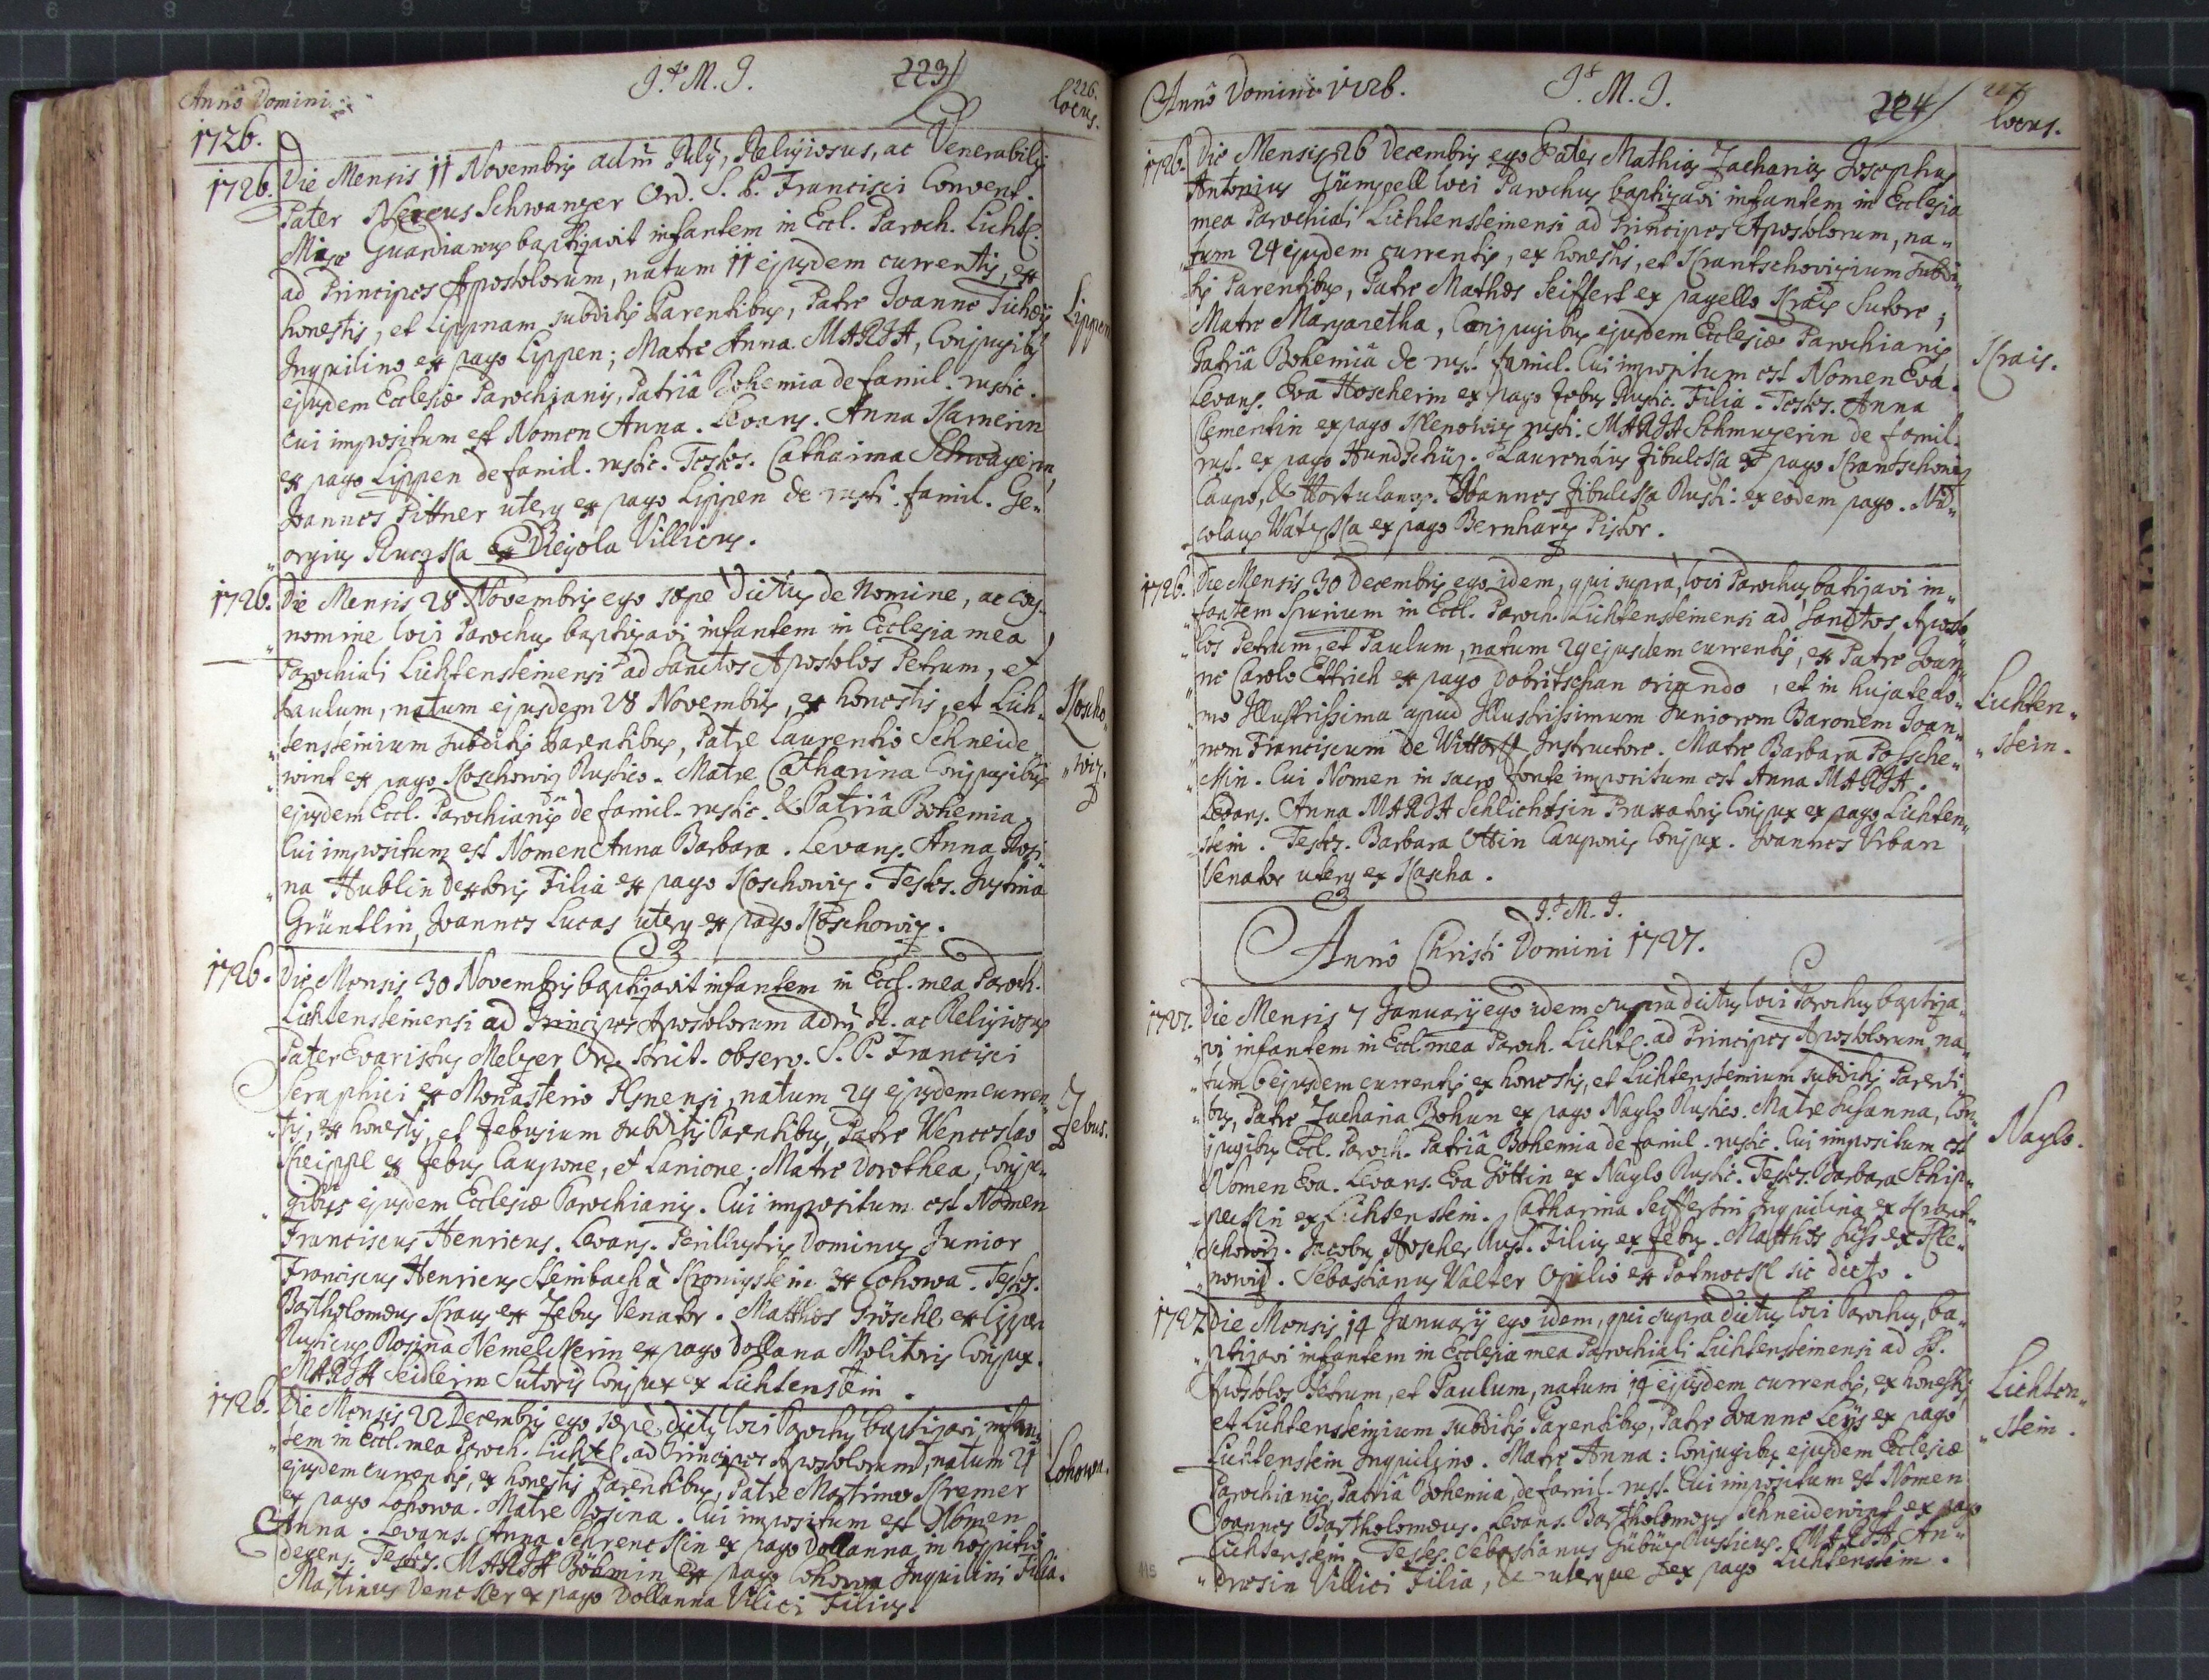 Anno Domini
J. M. J.
223
226.
locus.
1726.
1726. Die Mensis 11 Novembris adm̄ Rlis̄, Religiosus, ac Venerabilis
Pater Nereus Schwanzer Ord. S. P. Francisci Convent.
Guardianus baptizavit infantem in Eccl. Paroch. Lichts.
ad Principes Apostolorum, natum 11 ejusdem currentis, ex
honestis, et Lippnam subditis Parentibus, Patre Joanne
Inquilino ex pago Lippen; Matre Anna MARIA, Conjugibus
Lippen
ejusdem Ecclesiæ Parochianis, Patriâ Bohemia de famil. rustic.
cui impositum est Nomen Anna. Levans. Anna Karnerin
ex pago Lippen de famil. rustic. Testes. Catharina
Joannes Pittner uterq ex pago Lippen de rusti. famil. Ge„
„orgius Ruczka ex Villicus.
1726. Die Mensis 28 Novembris ego sæpè dictus de Nomine, ac cog„
„nomine loci Parochus baptizavi infantem in Ecclesia mea
Parochiali Lichtensteinensi ad Sanctos Apostolos Petrum, et
Paulum, natum ejusdem 28 Novembris, ex honestis, et Lich„
„tensteinium subditis Parentibus, Patre Laurentio Schneide„
„wint ex pago Koschowiz Rustico. Matre Catharina Conjugibus
Koscho„
„wiz.
ejusdem Eccl. Parochianis de famil. rustic. & Patriâ Bohemia,
Cui impositum est Nomen Anna Barbara. Levans. Anna Rosi„
„na Hublin Filia ex pago Koschowiz. Testes. Justina
Grüntlin, Joannes Lucas uterq ex pago Koschowiz.
1726. Die Mensis 30 Novembris baptizavit infantem in Eccl. mea Paroch.
Lichtensteinensi ad Principes Apostolorum adm̄ R. ac Religiosus
Pater Evaristus Melzer Ord. strict. observ. S. P. Francisci
Seraphici ex Monasterio Plsnensi, natum 29 ejusdem curren„
„tis, ex honestis, et Jebusium subditis Parentibus, Patre Wenceslao
Jebus.
Kreippl ex Jebus Caupone, et Lanione; Matre Dorothea, Conju„
„gibus ejusdem Ecclesiæ Parochianis. Cui impositum est Nomen
Franciscus Henricus. Levans. Perillustris Dominus Junior
Franciscus Henricus Steinbach à Kronigstein ex Lohowa. Testes.
Bartholomæus Kraus ex Jebus Venator. Matthes Gröschl ex Lippen
Rusticus Rosina Nemelkerin ex pago Dollana Molitoris Conjux.
MARIA Seidlerin Sutoris Conjux ex Lichtenstein.
1726. Die Mensis 22 Decembris ego sæpè dictus loci Parochus baptizavi infan„
„tem in Eccl. mea Paroch. Lichts. ad Principes Apostolorum, natum 21
ejusdem currentis, ex honestis Parentibus, Patre Martino Kremer
Lohowa.
ex pago Lohowa. Matre Rosina. Cui impositum est Nomen
Anna. Levans. Anna Schrenckin ex pago Dollanna in hospitio
degens. Testes. MARIA Böhmin ex pago Lohowa Inquilini Filia.
Martinus Dencker ex pago Dollanna Vilici Filius.
Anno Domini 1726.
J. M. J.
224
227
locus.
1726. Die Mensis 26 Decembris ego Pater Mathias Zacharias Josephus
Antonius Gümpell loci Parochus baptizavi infantem in Ecclesia
mea Parochiali Lichtensteinensi ad Principes Apostolorum, na„
„tum 24 ejusdem currentis, ex honestis, et Krantschovizium subdi„
„tis Parentibus, Patre Mathes Seiffert ex pagello Krais Sutore;
Matre Margaretha, Conjugibus ejusdem Ecclesiæ Parochianis
Krais.
Patriâ Bohemiâ de rust. famil. Cui impositum est Nomen Eva.
Levans. Eva Hoscherin ex pago Jebus Rustic. Filia. Testes. Anna
Clementin ex pago Klenowiz rusti. MARIA Schmuzerin de famil.
rust. ex pago Hundschüz. Laurentius Zibulcka ex pago Krantschowiz
Caupo, & Hortulanus. Joannes Zibulcka Rusti. ex eodem pago. Ni„
„colaus Watzka ex pago Bernharz Pistor.
1726. Die Mensis 30 Decembris ego idem, qui suprà, loci Parochus batizavi in„
„fantem spurium in Eccl. Paroch. Lichtensteinensi ad Sanctos Aposto„
„los Petrum, et Paulum, natum 29 ejusdem currentis, ex Patre Joan„
„ne Carolo Ettrich ex pago Dobritschan oriundo, et in hujate do„
Lichten„
„mo Illustrissima apud Illustrissimum Juniorem Baronem Joan„
„stein.
„nem Franciscum de Wittorff Instructore. Matre Barbara Potsche„
„ckin. Cui Nomen in sacro fonte impositum est Anna MARIA.
Levans. Anna MARIA Schlichtsin Braxatoris Conjux ex pago Lichten„
„stein. Testes. Barbara Ottin Cauponis Conjux. Joannes Urban
Venator uterq ex Kascha.
J. M. J.
Annô Christi Domini 1727.
1727. Die Mensis 7 Januarij ego idem supra dictus loci Parochus baptiza„
„vi infantem in Eccl. mea Paroch. Lichts. ad Principes Apostolorum, na„
„tum 6 ejusdem currentis ex honestis, et Lichtensteinium subditis Parenti„
„bus, Patre Zacharia Bohun ex pago Naglo Rustico. Matre Susanna, Con„
Naglo.
„jugibus Eccl. Paroch. Patriâ Bohemia de famil. rustic. Cui impositum est
Nomen Eva. Levans. Eva Göttin ex Naglo Rustic. Testes. Barbara Schip„
„peckin ex Lichtenstein. Catharina Seiffertin Inquilina ex Krant„
„schowiz. Jacobus Hoscher Rust. Filius ex Jebus. Matthes Süss ex Kle„
„nowiz. Sebastianus Walter Opilio ex Potmockl sic dicto.
1727. Die Mensis 14 Januarij ego idem, qui supra dictus loci Parochus, ba„
„ptizavi infantem in Ecclesia mea Parochiali Lichtensteinensi ad SS.
Apostolos Petrum, et Paulum, natum 14 ejusdem currentis, ex honestis,
Lichten„
et Lichtensteinium subditis Parentibus, Patre Joanne Leys ex pago
„stein.
Lichtenstein Inquilino. Matre Anna: Conjugibus ejusdem Ecclesiæ
Parochianis, Patriâ Bohemia, de famil. rust. Cui impositum est Nomen
Joannes Bartholomæus. Levans. Bartholomæus Schneidewint ex pago
Lichtenstein. Testes. Sebastianus Gübür Rusticus. MARIA An„
„dresin Villici Filia, uterque ex pago Lichtenstein.
115